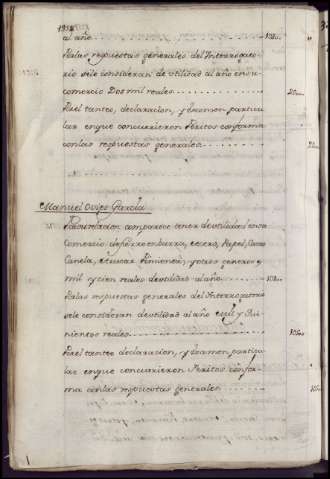 al año
Por las respuestas generales del Interrogato-
rio se le consideran de utilidad al año en su
comercio Dos mil reales
Por el tanteo, declaracion, y examen particu-
lar en que concurrieron Peritos conforma
con las respuestas generales
Manuel Garcia
Por su relacion comparece tener de utilidad en su
Comercio de fierro en barra, azero, Papel, Cacao
Canela, Azucar Pimienta, y otros generos
mil y cien reales de utilidad al año
Por las respuestas generales del Interrogatorio
se le consideran de utilidad al año mil y Qui-
nientos reales
Por el tanteo declaracion, y examen particu-
lar en que concurrieron Peritos confor-
ma con las respuestas generales